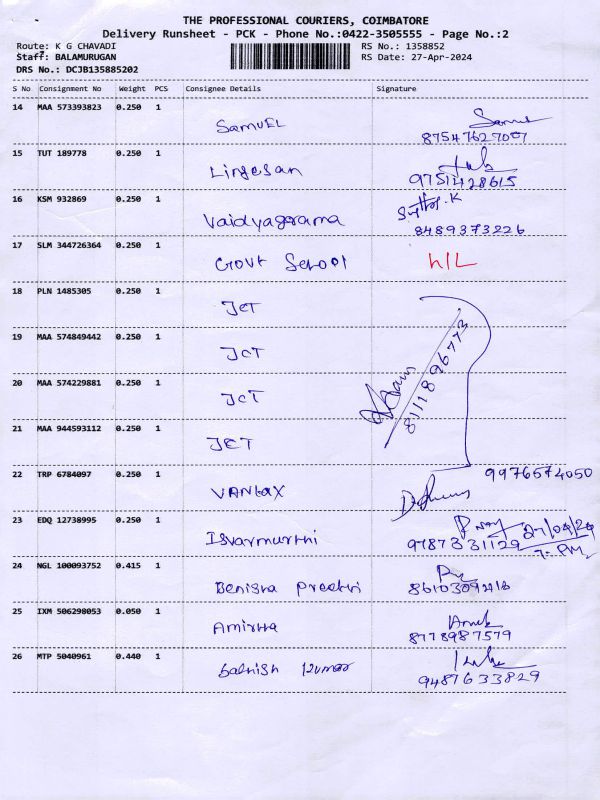 THE PROFESSIONAL COURIERS, COIMBATORE
Delivery Runsheet - PCK - Phone No.:0422-3505555 - Page No.:2
Route: K G CHAVADI RS No.: 1358852
Staff: BALAMURUGAN RS Date: 27-Apr-2024
DRS No.: DCJB135885202
S No Consignment No Weight PCS Consignee Details Signature
14 MAA 573393823 0.250 1 SamUEL
87547627007
15 TUT 189778 0.250 1 Lingesan
9751428615
16 KSM 932869 0.250 1 Vaidyagrama
8489373226
17 SLM 344726364 0.250 1 Govt School h/L
18 PLN 1485305 0.250 1 JCT
19 MAA 574849442 0.250 1 JCT
8111896773
20 MAA 574229881 0.250 1 JCT
21 MAA 944593112 0.250 1 JCT
22 TRP 6784097 0.250 1 VANtax 9976574050
23 EDQ 12738995 0.250 1 Isvarmurthi 27/04/24
9787331129 7. PM
24 NGL 100093752 0.415 1 Benisha Preethi
25 IXM 506298053 0.050 1 Amirtha
8778987579
26 MTP 5040961 0.440 1 Kumar
9487633829